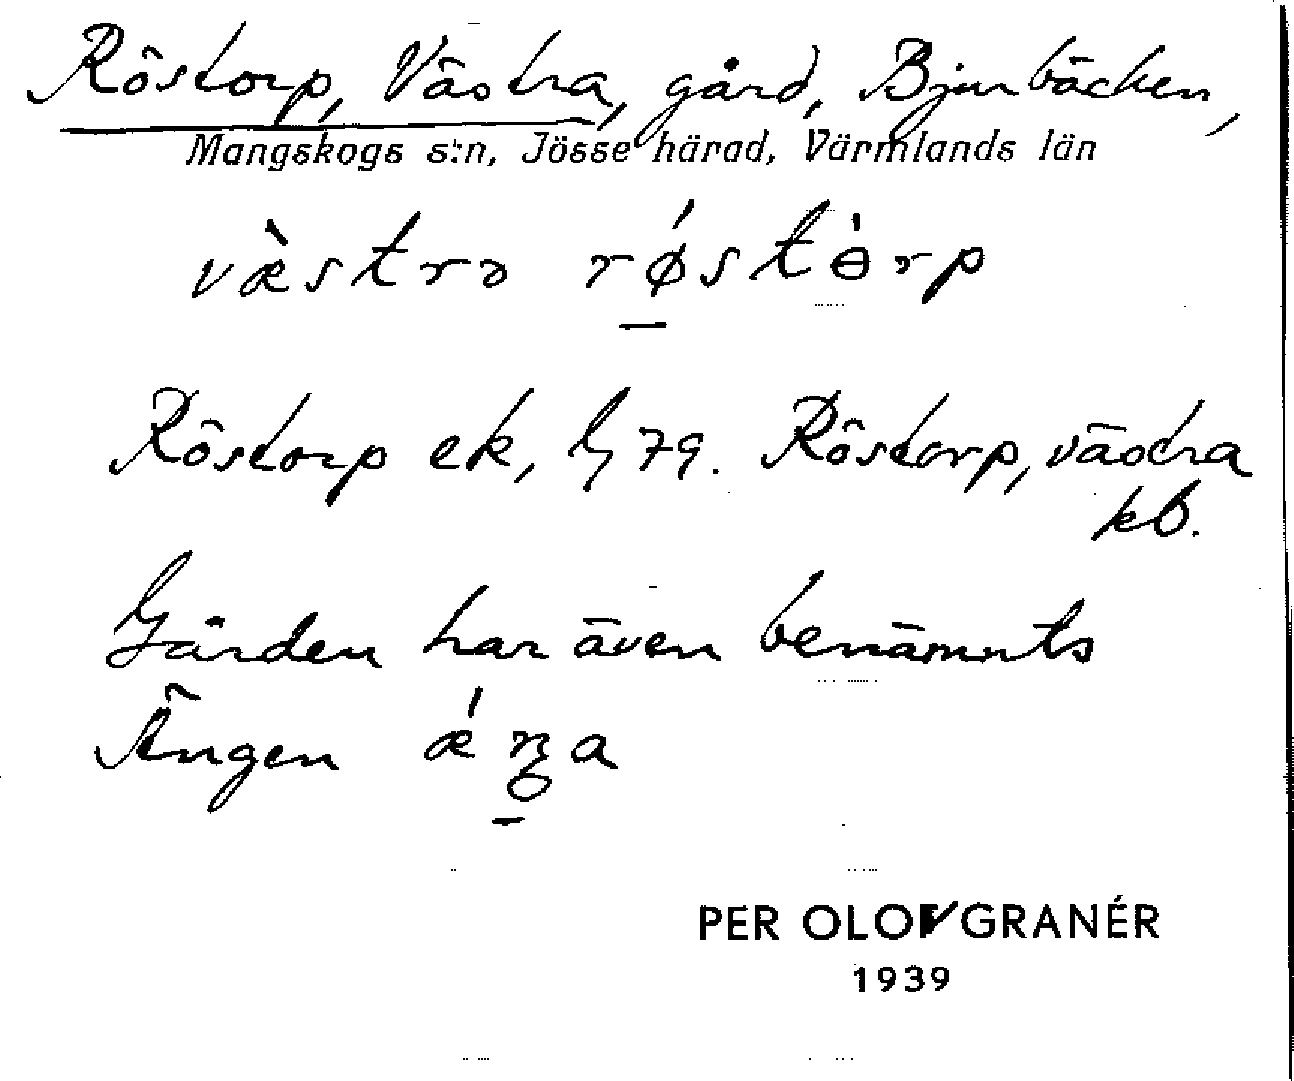 Röstorp, Västra, gård, Bjurbäcken,
Mangskogs s:n, Jösse härad, Värmlands län
væ̀strə rǿstɵ̀rp
Röstorp ek, Gj 79. Röstorp, västra
kb.
Gården har även benämnts
Ängen ǽŋa
PER OLOV GRANÉR
1939